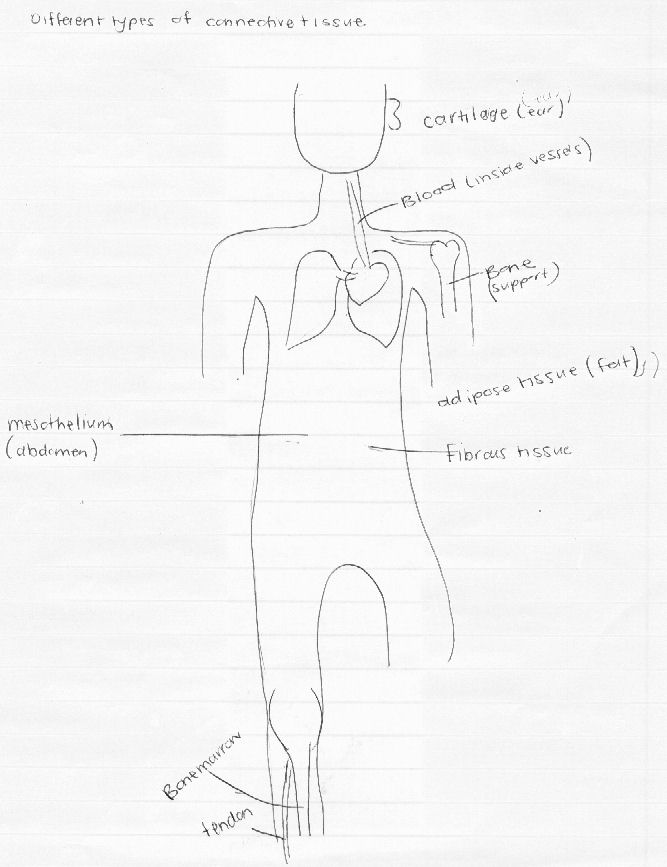 Different types of connective tissue.
cartilage (ear)
Blood (inside vessels)
Bone
(support)
adipose tissue (fat)
mesothelium
(abdomen)
Fibrous tissue
Bonemarrow
tendon